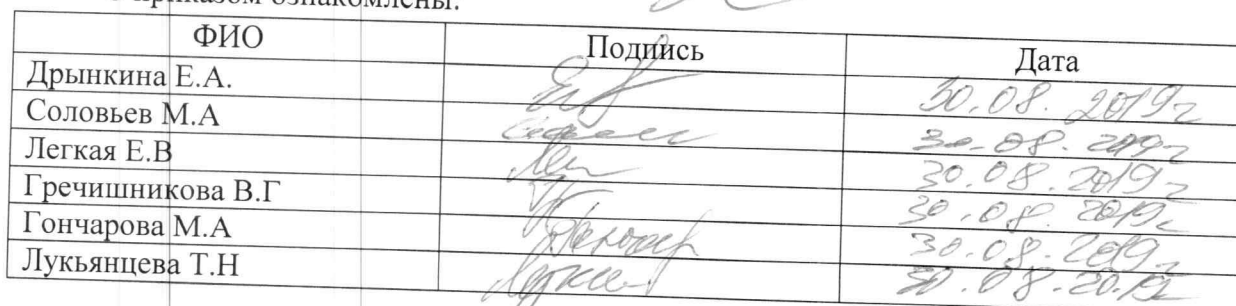 приказом ознакомлены:
ФИО Подпись Дата
Дрынкина Е.А. 30.08.2019г
Соловьев М.А 30.08.2019г
Легкая Е.В 30.08.2019г
Гречишникова В.Г 30.08.2019г
Гончарова М.А 30.08.2019г
Лукьянцева Т.Н 30.08.2019г